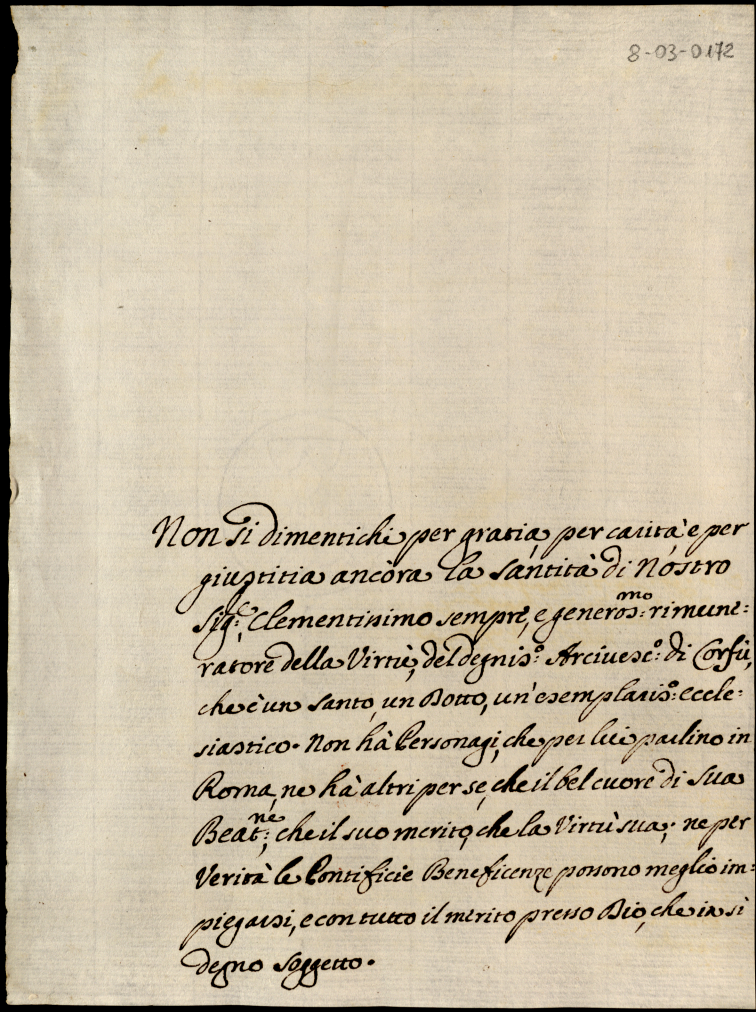 8-03-0172
Non si dimentichi per gratia, per carità, e per
giustitia ancora la santità di Nostro
Sig.re Clementissimo sempre, e generos.mo rimune=
ratore della Virtù, del degnis.o Arcivesc.o di Corfù,
che è un santo, un Dotto, un'esemplaris.o eccle=
siastico. Non hà Personagi, che per lui parlino in
Roma, ne hà altri per se, che il bel cuore di sua
Beat.ne, che il suo merito, che la Virtù sua; ne per
Verità le Pontificie Beneficenze possono meglio im=
piegarsi, e con tutto il merito presso Dio, che in si
degno soggetto.